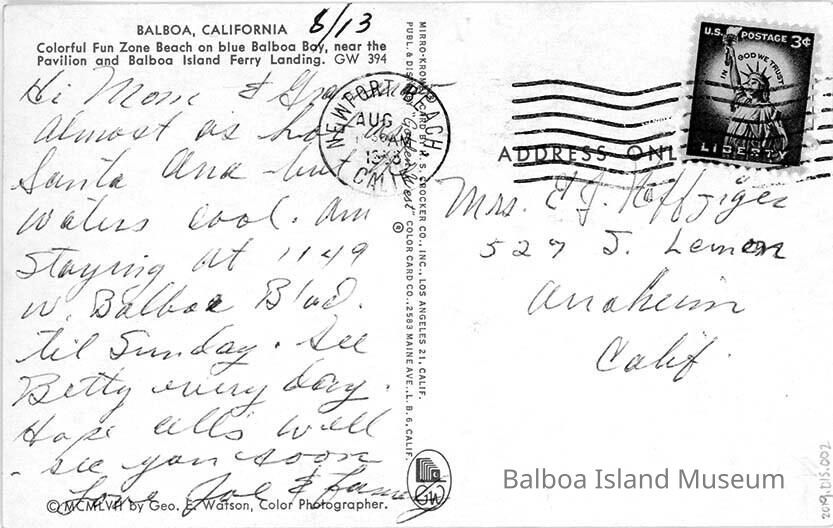 BALBOA, CALIFORNIA
8/13
Colorful Fun Zone Beach on blue Balboa Bay, near the
Pavilion and Balboa Island Ferry Landing. GW 394
Hi Mom &
almost as
Santa Ana but
waters cool. Am
staying at 1149
W. Balboa Blvd.
til Sunday. See
Betty every day.
Hope all's well
- see you soon
Love Joe & family
© MCMLVII by Geo. E. Watson, Color Photographer.
MIRRO-KROME CARD BY H. S. CROCKER CO., INC., LOS ANGELES 21, CALIF.
PUBL. & DIST. "Golden West" COLOR CARD CO., 2583 MAINE AVE., L. B. 6, CALIF.
®
GW
NEWPORT BEACH
AUG
AM
CALIF
U.S. POSTAGE 3¢
IN GOD WE TRUST
LIBERTY
ADDRESS ONLY
Mrs. E J. Heffziger
527 S. Lemon
Anaheim
Calif.
Balboa Island Museum
2019.DIS.002